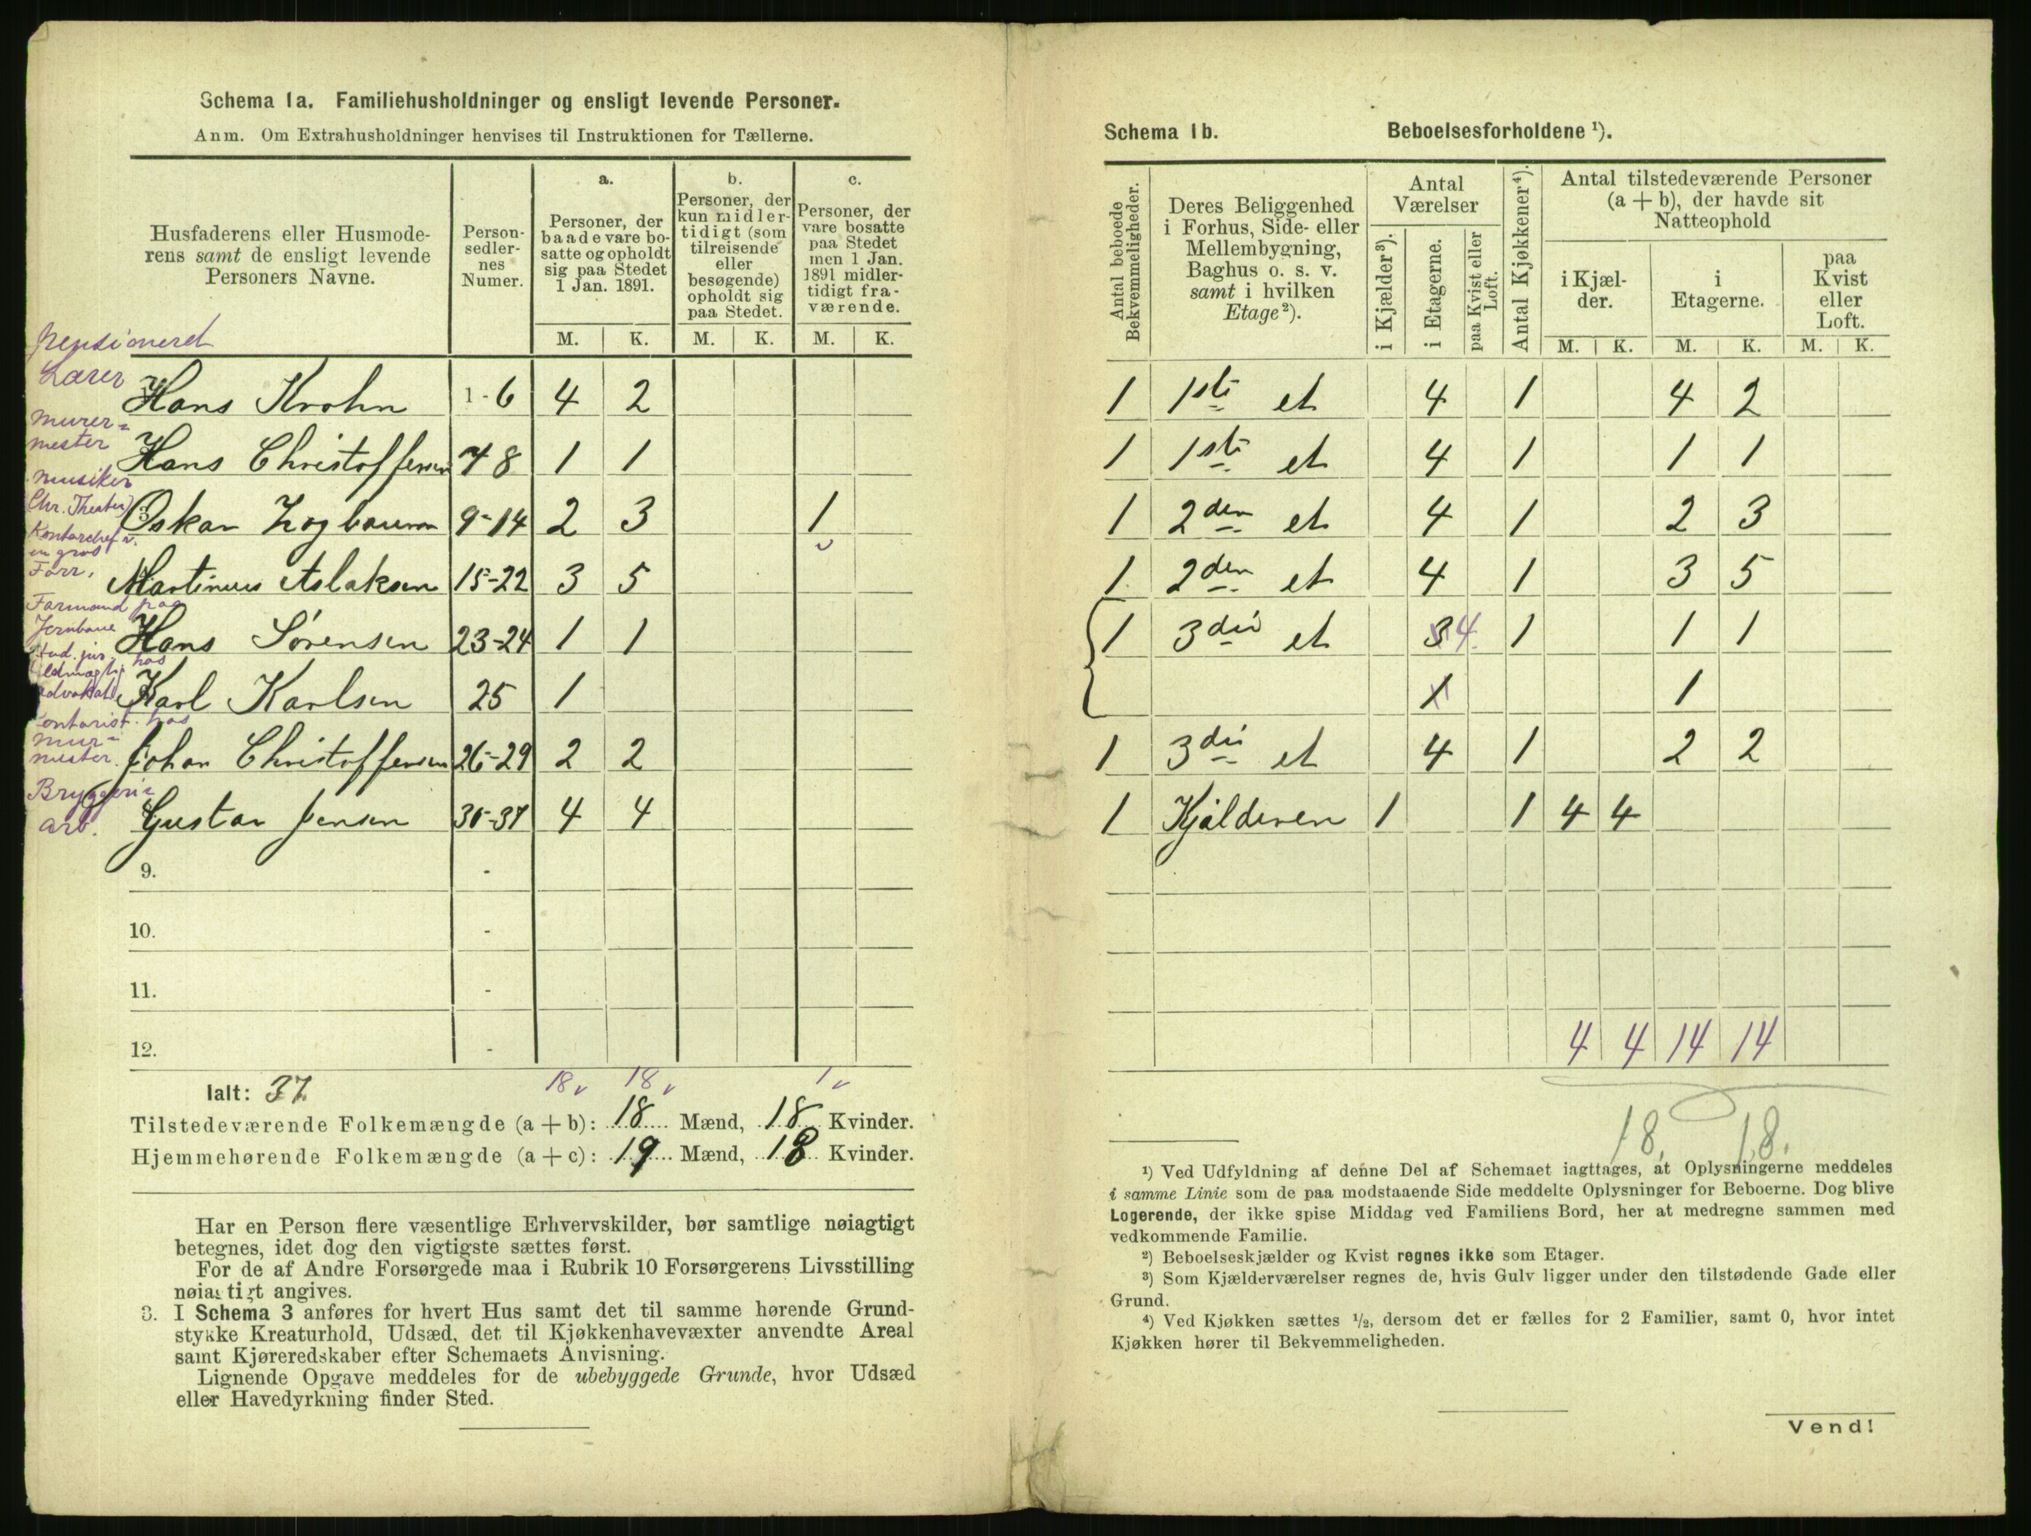 Schema 1a. Familiehusholdninger og ensligt levende Personer.
Anm. Om Extrahusholdninger henvises til Instruktionen for Tællerne.
Husfaderens eller Husmode-
rens samt de ensligt levende
Personers Navne.
Person-
sedler-
nes
Numer.
a.
Personer, der
baade vare bo-
satte og opholdt
sig paa Stedet
1 Jan. 1891.
b.
Personer, der
kun midler-
tidigt (som
tilreisende
eller
besøgende)
opholdt sig
paa Stedet.
c.
Personer, der
vare bosatte
paa Stedet
men 1 Jan.
1891 midler-
tidigt fra-
værende.
M. K. M. K. M. K.
pensioneret
Lærer
Hans Krohn 1-6 4 2
Murer-
mester
Hans Christoffersen 7-8 1 1
musiker
(Chr. Theater)
Oskar Zogbaum 9-14 2 3 1
Kontorchef v.
en gros
Forr.
Martinus Aslaksen 15-22 3 5
Formand paa
Jernbane
Hans Sørensen 23-24 1 1
Stud. jur. hos
Karl Karlsen 25 1
Kontorist hos
mur-
mester.
Johan Christoffersen 26-29 2 2
Bryggeri-
arb.
Gustav Jensen 30-37 4 4
9. -
10. -
11. -
12. -
18 v 18 v 1 v
Ialt: 37
Tilstedeværende Folkemængde (a + b): 18 Mænd, 18 Kvinder.
Hjemmehørende Folkemængde (a + c): 19 Mænd, 18 Kvinder.
Har en Person flere væsentlige Erhvervskilder, bør samtlige nøiagtigt
betegnes, idet dog den vigtigste sættes først.
For de af Andre Forsørgede maa i Rubrik 10 Forsørgerens Livsstilling
nøiagtigt angives.
3. I Schema 3 anføres for hvert Hus samt det til samme hørende Grund-
stykke Kreaturhold, Udsæd, det til Kjøkkenhavevæxter anvendte Areal
samt Kjøreredskaber efter Schemaets Anvisning.
Lignende Opgave meddeles for de ubebyggede Grunde, hvor Udsæd
eller Havedyrkning finder Sted.
Schema 1b. Beboelsesforholdene ¹).
Antal beboede
Bekvemmeligheder.
Deres Beliggenhed
i Forhus, Side- eller
Mellembygning,
Baghus o. s. v.
samt i hvilken
Etage ²).
Antal
Værelser
i Kjælder ³).
i Etagerne.
paa Kvist eller
Loft.
Antal Kjøkkener ⁴).
Antal tilstedeværende Personer
(a + b), der havde sit
Natteophold
i Kjæl-
der.
i
Etagerne.
paa
Kvist
eller
Loft.
M. K. M. K. M. K.
1 1ste et 4 1 4 2
1 1ste et 4 1 1 1
1 2den et 4 1 2 3
1 2den et 4 1 3 5
1 3die et 3 4 1 1 1
1 1
1 3die et 4 1 2 2
1 Kjælderen 1 1 4 4
4 4 14 14
18. 18.
¹) Ved Udfyldning af denne Del af Schemaet iagttages, at Oplysningerne meddeles
i samme Linie som de paa modstaaende Side meddelte Oplysninger for Beboerne. Dog blive
Logerende, der ikke spise Middag ved Familiens Bord, her at medregne sammen med
vedkommende Familie.
²) Beboelseskjælder og Kvist regnes ikke som Etager.
³) Som Kjælderværelser regnes de, hvis Gulv ligger under den tilstødende Gade eller
Grund.
⁴) Ved Kjøkken sættes ½, dersom det er fælles for 2 Familier, samt 0, hvor intet
Kjøkken hører til Bekvemmeligheden.
Vend!